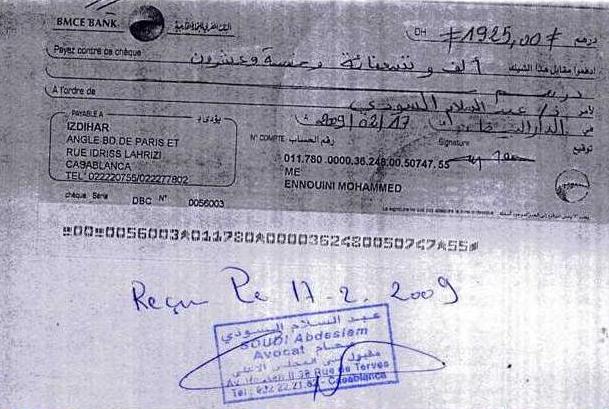 BMCE BANK
DH #1925,00# درهم
Payez contre ce chèque ألف و تسعمائة و خمسة وعشرون ادفعوا مقابل هذا الشيك
درهم
A l'ordre de ذ/ عبد السلام السودي لأمر
الدار البيضاء في 2009/02/17
PAYABLE A يؤدى بـ
IZDIHAR
ANGLE BD DE PARIS ET
RUE IDRISS LAHRIZI
CASABLANCA
TEL' 022220755/022277802
N° COMPTE رقم الحساب
Signature توقيع
011.780 .0000.36.248.00.50747.55
ME
ENNOUINI MOHAMMED
chèque Série DBC N° 0056003
0056003 011780 0000362480050747 55
Reçu le 17-2-2009
عبد السلام السودي
SOUDI Abdeslem
Avocat محام
مقبول لدى المجلس الأعلى
38 Rue de Terves
Tel : 022.22.21.82 - Casablanca